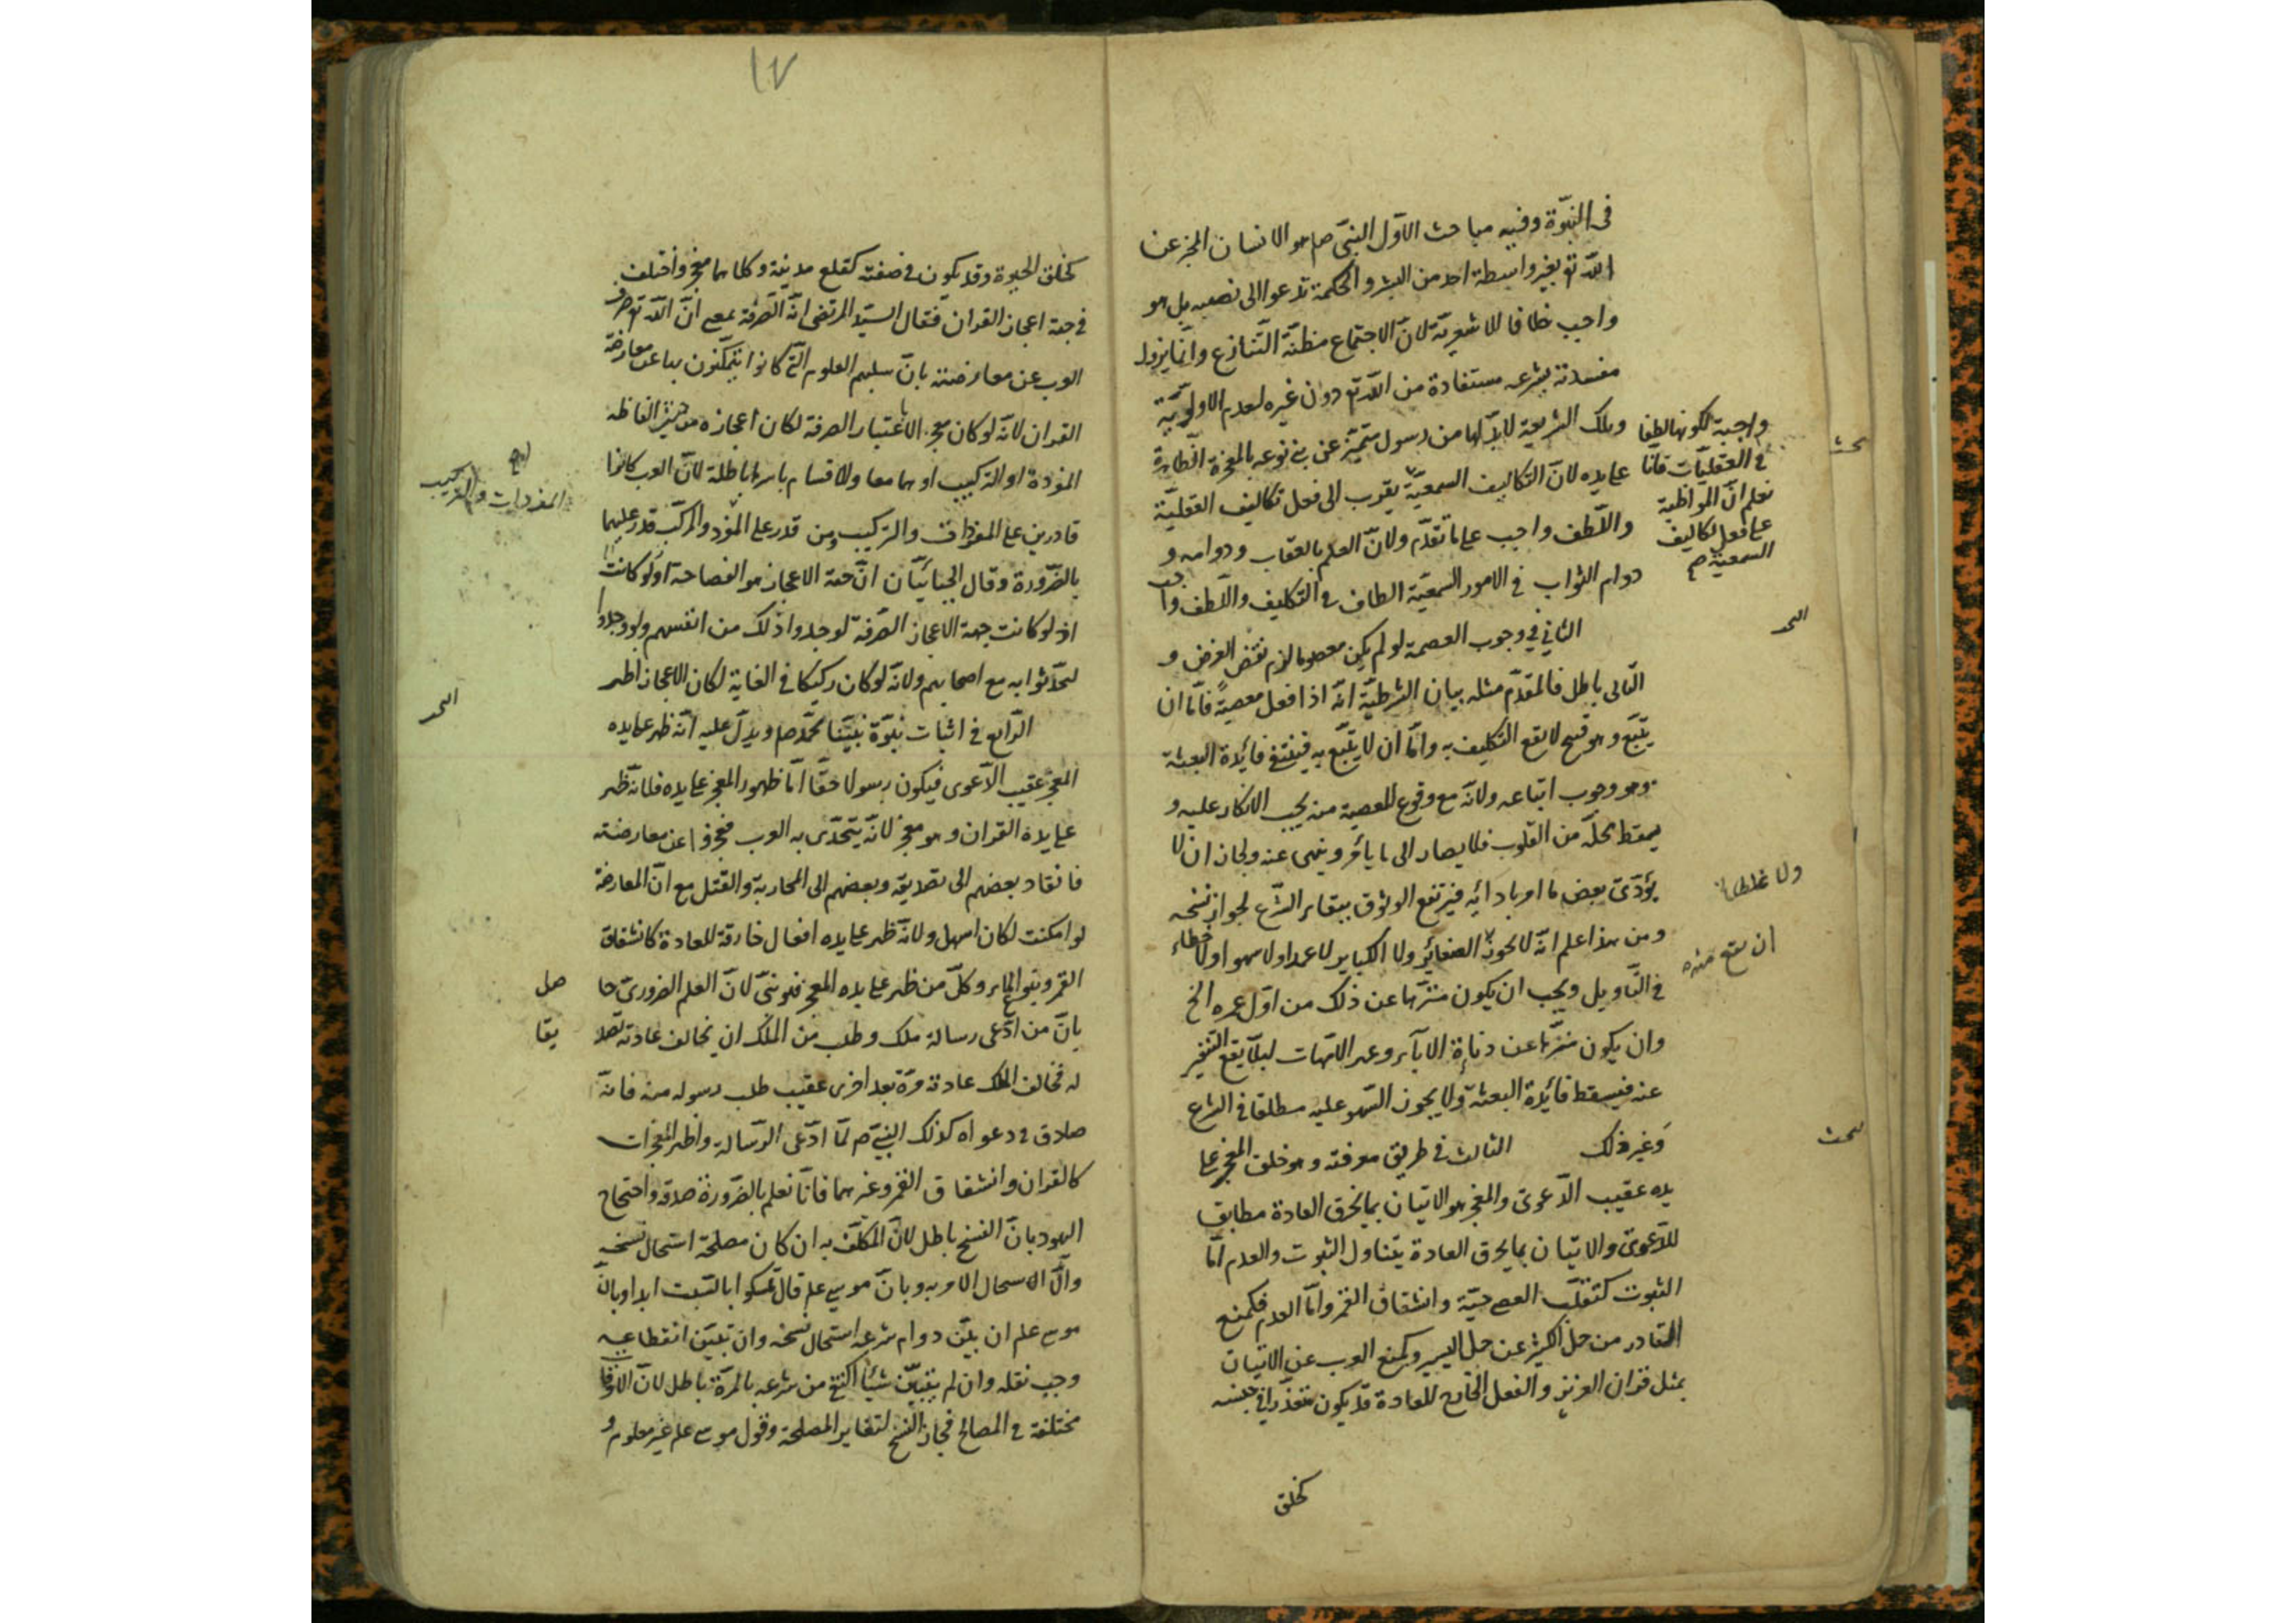 فى النبوّة وفيه مباحث الاوّل النبى ص هو الانسان المخبر عن
الله تع بغير واسطة احد من البشر والحكمة تدعوا الى نصبه بل هو
واجب خلافا للاشعريّة لانّ الاجتماع مظنّة التّنازع وانّما يزول
مفسدته بشرعه مستفادة من الله تع دون غيره لعدم الاولويّة
وتلك الشريعة لابدّ لها من رسول متميّز عن بنى نوعه بالمعجزة الظاهرة
على يده لانّ التكاليف السمعيّة يقرب الى فعل تكاليف العقليّة
واللّطف واجب على ما تقدّم ولانّ العلم بالعقاب ودوامه و
دوام الثواب فى الامور السمعيّة الطاف فى التكليف واللّطف واجب
واجبة لكونها لطفا
فى العقليّات فانا
نعلم انّ المواظبة
على فعل تكاليف
السمعية ص
بحث
الثانى فى وجوب العصمة لو لم يكن معصوما لزم نقض الغرض و
البحث
التّالى باطل فالمقدّم مثله بيان الشرطيّة انّه اذا فعل معصيةً فامّا ان
يتّبع وهو قبيح لا يقع التكليف به وامّا ان لا يتّبع به فينتفى فائدة البعثة
وهو وجوب اتباعه ولانّه مع وقوع المعصية منه يجب الانكار عليه و
يسقط محلّه من القلوب فلا يصار الى ما يأمر وينهى عنه ولجاز ان لا
يؤدّى بعض ما امر بادائه فيرتفع الوثوق ببقاء الشّرع لجواز نسخه
ومن هذا علم انّه لا يجوز الصغائر ولا الكباير لا عمدا ولا سهوا ولا خطاء
ولا غلطا
ان يقع منه
فى التّأويل ويجب ان يكون منزّها عن ذلك من اوّل عمره الخ
وان يكون منزّها عن دناءة الآباء وعهر الامّهات لئلّا يقع التنفير
عنه فيسقط فائدة البعثة ولا يجوز السّهو عليه مطلقا فى الشرع
وغير ذلك الثالث فى طريق معرفته وهو خلق المعجز على
بحث
يده عقيب الدّعوى والمعجز هو الاتيان بما يخرق العادة مطابق
للدّعوى والاتيان بما يخرق العادة يتناول الثبوت والعدم امّا
الثبوت كتقلّب العصى حيّة وانشقاق القمر وامّا العدم فكمنع
القادر من حمل الكثير عن حمل اليسير وكمنع العرب عن الاتيان
بمثل قران العزيز والفعل الخارق للعادة قد يكون متعذّرا فى جنسه
كخلق
١٧
كخلق الحيوة وقد يكون فى صفته كقلع مدينة وكلاهما معجز واختلف
فى جهة اعجاز القران فقال السيّد المرتضى انّه الصّرفة بمعنى انّ الله تع صرف
العرب عن معارضته بان سلبهم العلوم الّتى كانوا يتمكّنون بها عن معارضة
القران لانّه لو كان معجزا لا باعتبار الصرفة لكان اعجازه من حيث الفاظه
المفردة او التركيب او هما معا والاقسام باسرها باطلة لانّ العرب كانوا
المفردات والتركيب
قادرين على المفردات والتركيب ومن قدر على المفرد والمركّب قدر عليهما
بالضّرورة وقال الجبائيّان انّ جهة الاعجاز هو الفصاحة
اذ لو كانت جهة الاعجاز الصّرفة لوجدوا ذلك من انفسهم ولو وجدوا
لتحدّثوا به مع اصحابهم ولانّه لو كان ركيكا فى الغاية لكان الاعجاز اظهر
الرّابع فى اثبات نبوّة نبيّنا محمّد ص ويدلّ عليه انّه ظهر على يده
البحث
المعجز عقيب الدّعوى فيكون رسولا حقّا امّا ظهور المعجز على يده فلانّه ظهر
على يده القران وهو معجز لانّه يتحدّى به العرب فعجزوا عن معارضته
فانقاد بعضهم الى تصديقه وبعضهم الى المحاربة والقتل مع انّ المعارضة
لو امكنت لكان اسهل ولانّه ظهر على يده افعال خارقة للعادة كانشقاق
القمر وينبوع الماء وكلّ من ظهر على يده المعجز فهو نبىّ لانّ العلم الضرورىّ حا
صل
بانّ من ادّعى رسالة ملك وطلب من الملك ان يخالف عادته تصد
يقا
له فخالف الملك عادته مرّة بعد اخرى عقيب طلب رسوله منه فانّه
صادق فى دعواه كذلك النبىّ ص لمّا ادّعى الرّسالة واظهر المعجزات
كالقران وانشقاق القمر وغيرهما فانّا نعلم بالضّرورة صدقه واحتجاج
اليهود بانّ النسخ باطل لانّ المكلّف به ان كان مصلحة استحال نسخه
والّا استحال الامر به وبانّ موسى علم قال تمسكوا بالسّبت ابدا وبانّ
موسى علم ان بيّن دوام شرعه استحال نسخه وان تبيّن انقطاعه
وجب نقله وان لم يتبيّن شيئا اكتفى من شرعه بالمرّة باطل لانّ الاوقات
مختلفة فى المصالح فجاز النسخ لتغاير المصلحة وقول موسى علم غير معلوم و